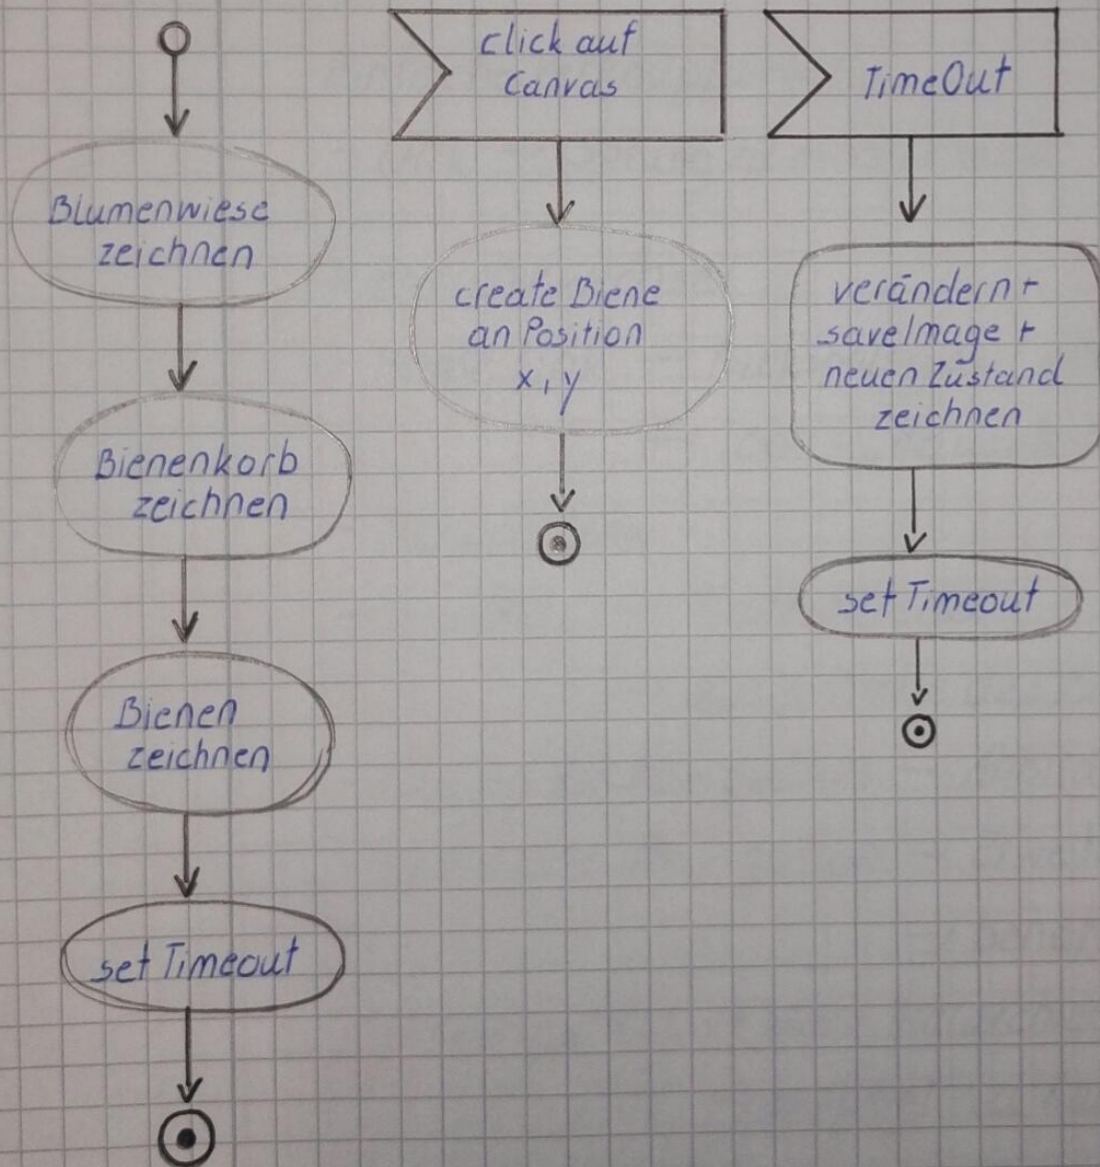 Blumenwiese
zeichnen
Bienenkorb
zeichnen
Bienen
zeichnen
set Timeout
click auf
Canvas
create Biene
an Position
x, y
TimeOut
verändern +
saveImage +
neuen Zustand
zeichnen
set Timeout